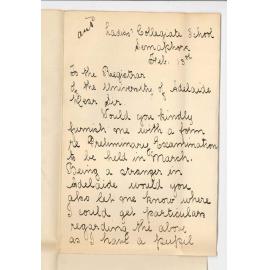 ansd
Ladies' Collegiate School
Semaphore
Feb. 13th
To the Registrar
Of the University of Adelaide
Dear Sir
Would you kindly
furnish me with a form
re Preliminary Examination
to be held in March.
Being a stranger in
Adelaide would you
also let me know where
I could get particulars
regarding the above
as I have a pupil